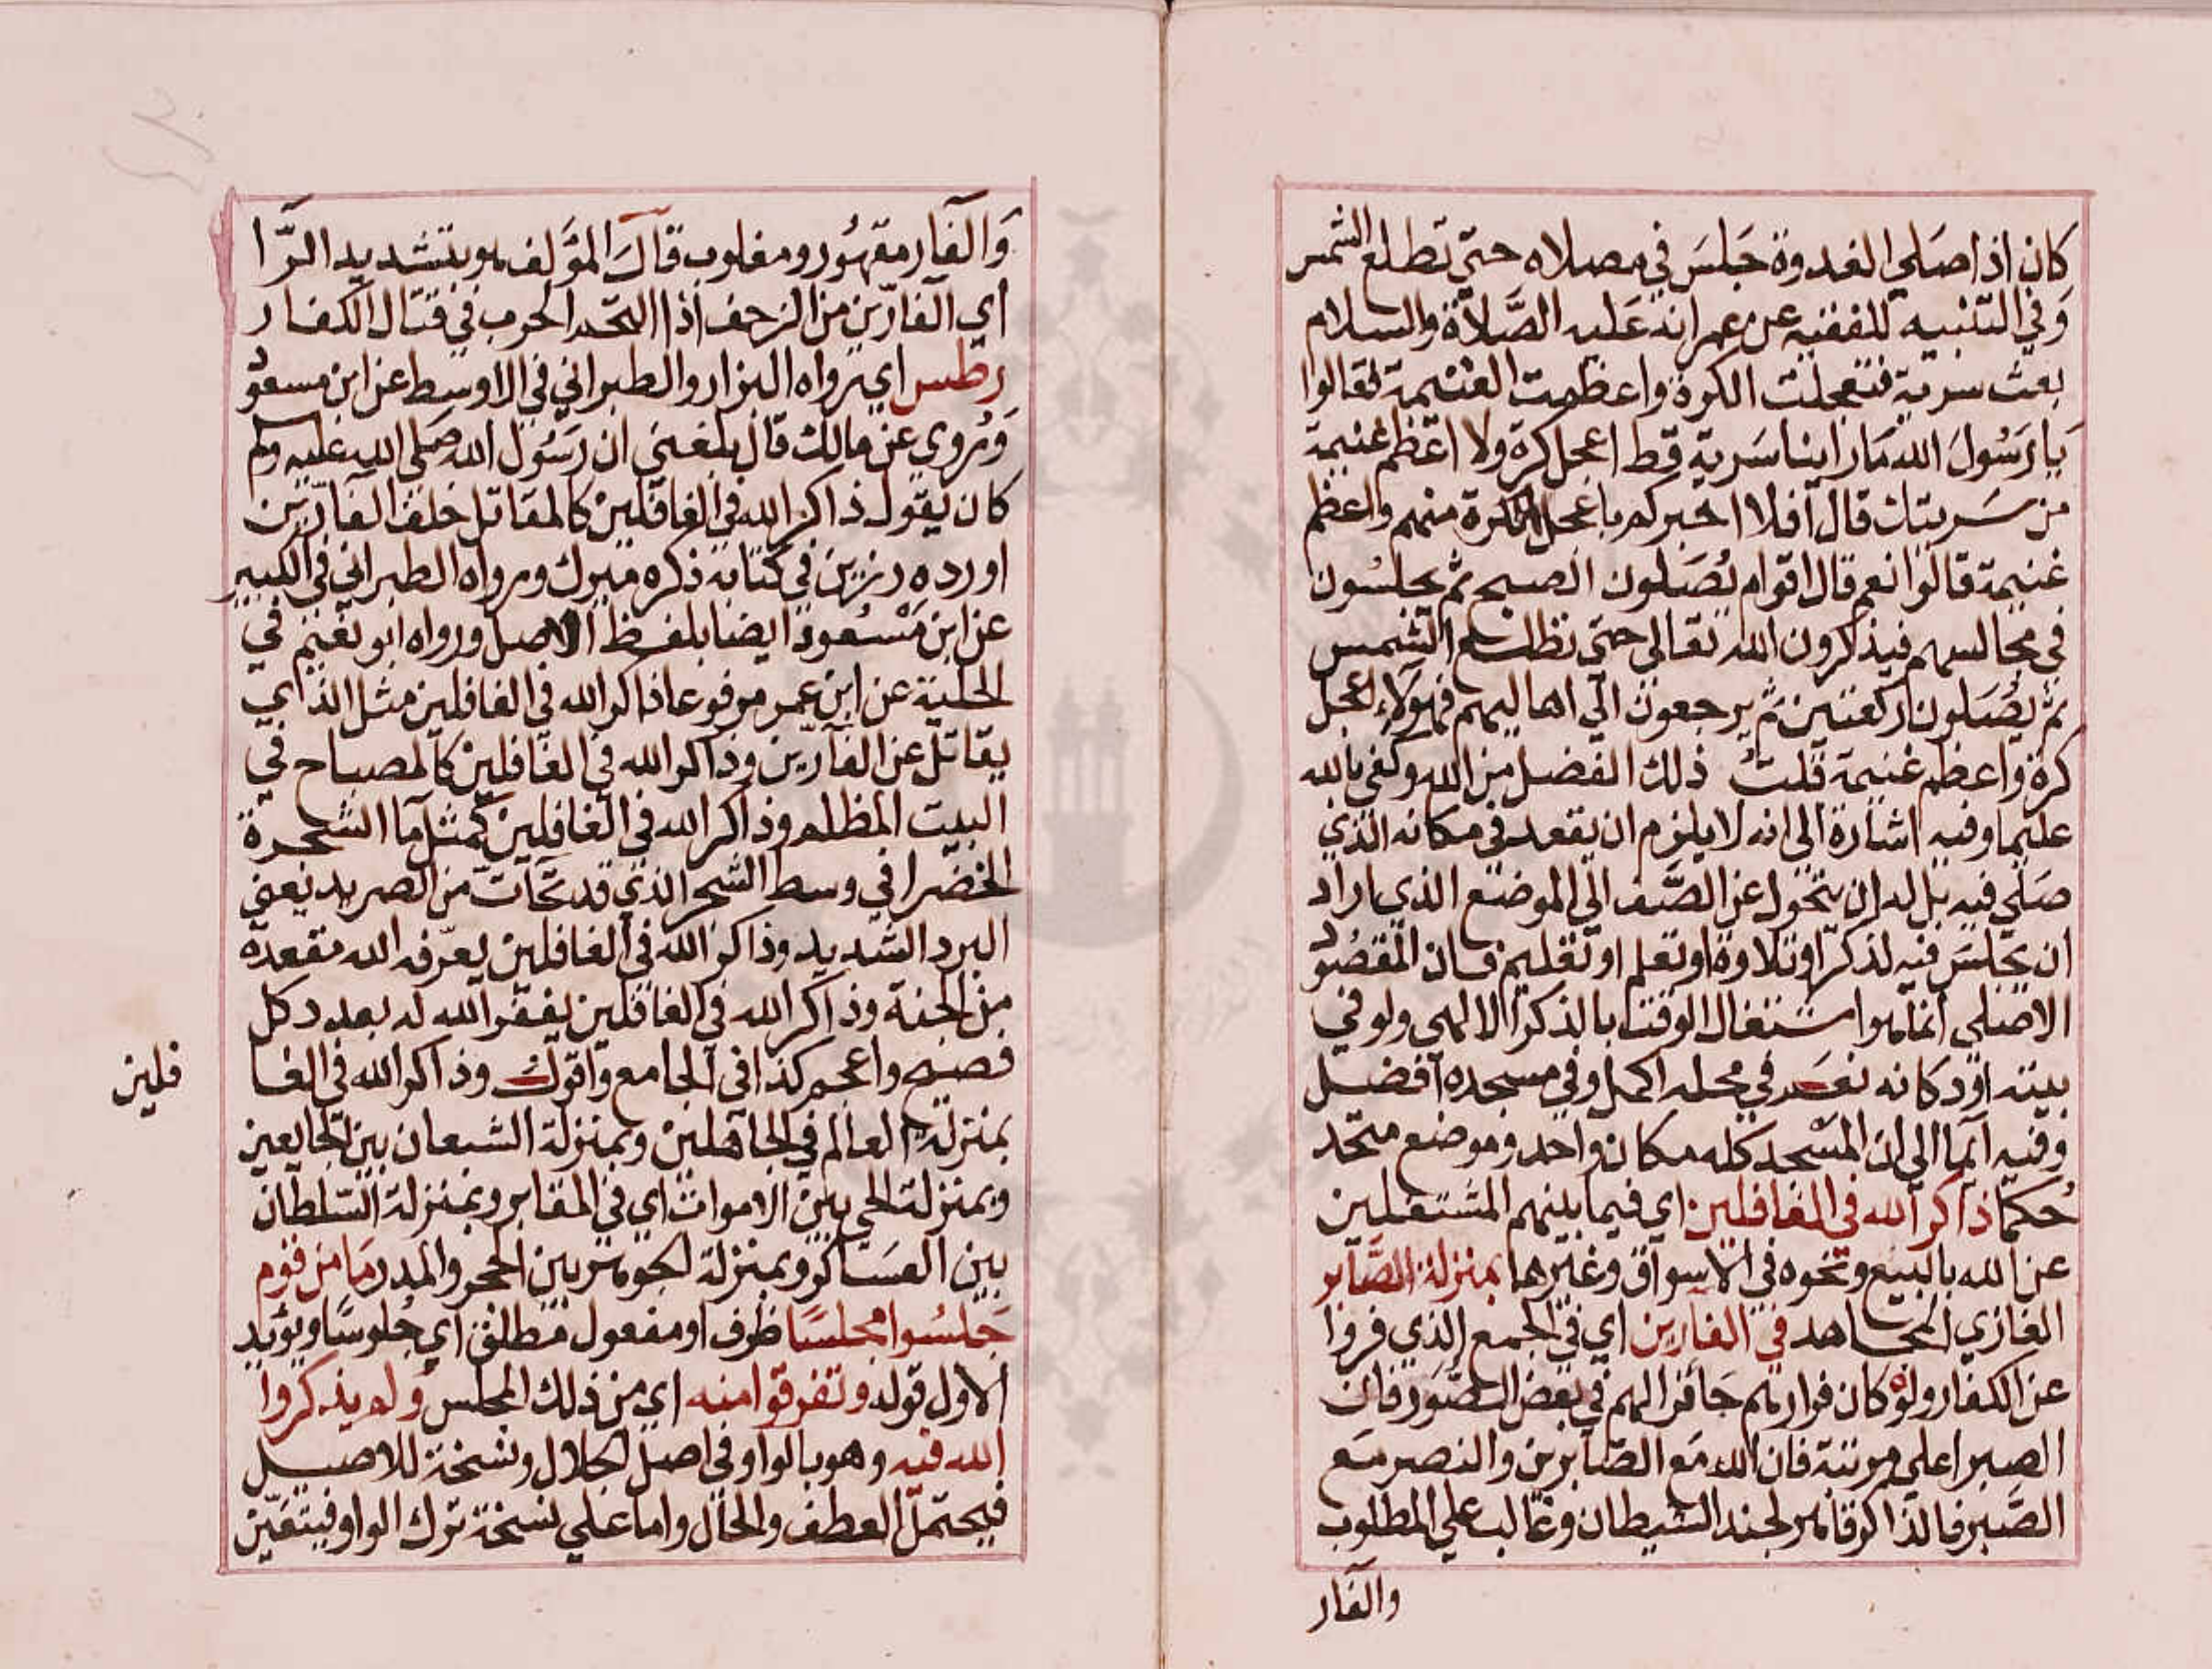 كان اذا صَلي الغدوة جَلسَ في مصلاه حتي تطلع الشمس
وَفي التنبيه للفقيه عن عمر انه عَليه الصَّلاة والسلام
بعث سرية فتعجلت الكرة واعظمت الغنيمة فقالوا
يا رَسُولَ الله مَا راينا سَرية قط اعجل كرة ولا اعظم غنيمة
من سَريتك قال افلا اخبركم باعجل الكرة منهم واعظم
غنيمة قالوا نعم قال اقوام يُصَلون الصبح ثم يجلسُون
في مجالسهم فيذكرون الله تعالى حتي تطلع الشمس
ثم يُصَلون ركعتين ثم يرجعون الي اهاليهم فهؤلاء اعجل
كرة واعظم غنيمة قلتُ ذلك الفضل من الله وكفي بالله
عليما وفيه اشارة الى انه لا يلزم ان يقعد في مكانه الذي
صَلي فيه بل له ان يتحول عن الصَّف الي الموضع الذي اراد
ان يجلسَ فيه لذكر او تلاوة او تعلم او تعليم فان المقصُود
الاصلي انما هو اشتغال الوقت بالذكر الالهي ولو في
بيته او دكانه نعم في محله اكمل وفي مسجده افضل
وفيه ايما الى ان المسْجد كله مكان واحد وموضع متحد
حُكما ذاكر الله في الغافلين اي فيما بينهم المشتغلين
عن الله بالبيع ونحوه في الاسواق وغيرهما بمنزلة الصَّابر
الغازي المجاهد في الفارين اي في الجمع الذي فروا
عن الكفار ولو كان فرارهم جَائز الهم في بعض الصُّوَر فان
الصبر اعلي مرتبة فان الله مَع الصّابرين والنصر مَع
الصَّبر فالذاكر قاهر لجند الشيطان وغالب علي المطلوب
والفار
وَالفار مقهُور ومغلوب قالَ المؤلف هو بتشديد الرّا
اي الفارّين من الزحف اذا اتحد الحرب في قتال الكفار
رطس اي رواه البزار والطبراني في الاوسط عن ابن مسعود
وَيروي عن مالك قال بلغني ان رَسُول الله صَلى الله عليه وسلم
كان يقول ذاكر الله في الغافلين كالمقاتل خلف الفارّين
اورده رزين في كتابه ذكره ميرك ورواه الطبراني في الكبير
عن ابن مسْعود ايضا بلفظ الاصل ورواه ابو نعيم في
الحلية عن ابن عمر مرفوعا ذاكر الله في الغافلين مثل الذي
يقاتل عن الفارّين وذاكر الله في الغافلين كالمصباح في
البيت المظلم وذاكر الله في الغافلين كمثل ما الشجرة
الخضرا في وسط الشجر الذي قد تحات من الصريد يعني
البرد الشديد وذاكر الله في الغافلين يعرّفه الله مقعده
من الجنة وذاكر الله في الغافلين يغفر الله له بعدد كل
فصيح واعجم كذا في الجامع واقول وذاكر الله في الغا
فلين
بمنزلة العالم في الجاهلين وبمنزلة الشبعان بين الجايعين
وبمنزلة الحي بين الاموات اي في المقابر وبمنزلة السّلطان
بين العسَاكر وبمنزلة الجوهر بين الحجر والمدر مَا من قوم
جَلسُوا مجلسًا ظرف او مفعول مطلق اي جُلوسًا ويؤيد
الاول قوله وتفرقوا منه اي من ذلك المجلس وَلم يذكروا
الله فيه وهو بالواو في اصل الجلال ونسخة للاصيل
فيحتمل العطف والحال واما علي نسخة ترك الواو فيتعيّن